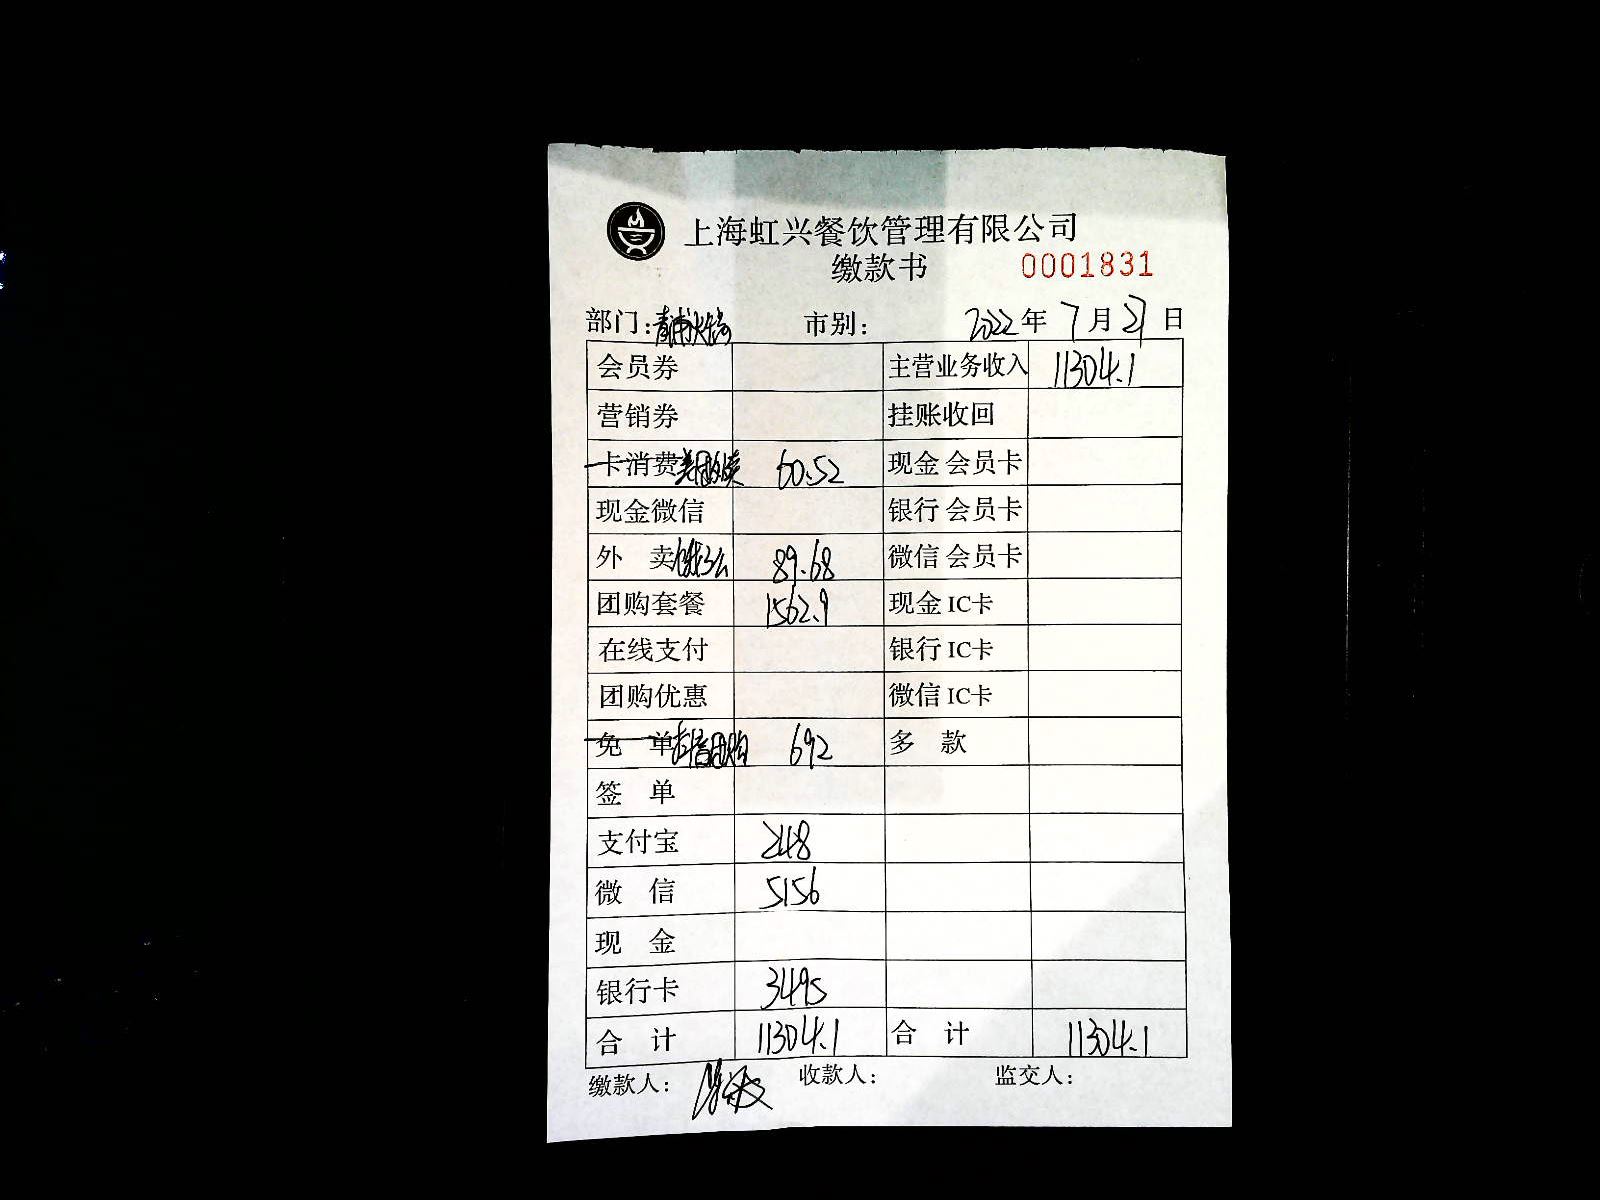 上海虹兴餐饮管理有限公司
缴款书 0001831
部门:青浦火锅 市别: 2022年 7月 日
会员券 主营业务收入 11304.1
营销券 挂账收回
卡消费 美团外卖 60.52 现金 会员卡
现金微信 银行 会员卡
外 卖 饿了么 89.68 微信 会员卡
团购套餐 1562.9 现金 IC卡
在线支付 银行 IC卡
团购优惠 微信 IC卡
免 单 抖音团购 692 多 款
签 单
支付宝 248
微 信 5156
现 金
银行卡 3495
合 计 11304.1 合 计 11304.1
缴款人: 收款人: 监交人: